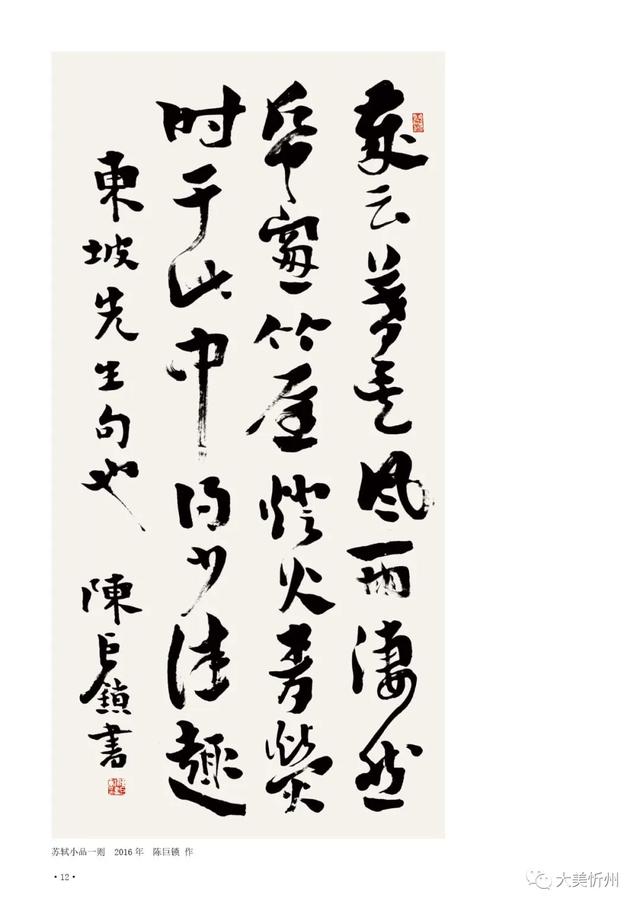 歲云暮矣風雨淒然
帋窗竹屋燈火青熒
时于此中得少佳趣
東坡先生句也 陳巨鎖書
苏轼小品一则 2016年 陈巨锁 作
·12·
大美忻州